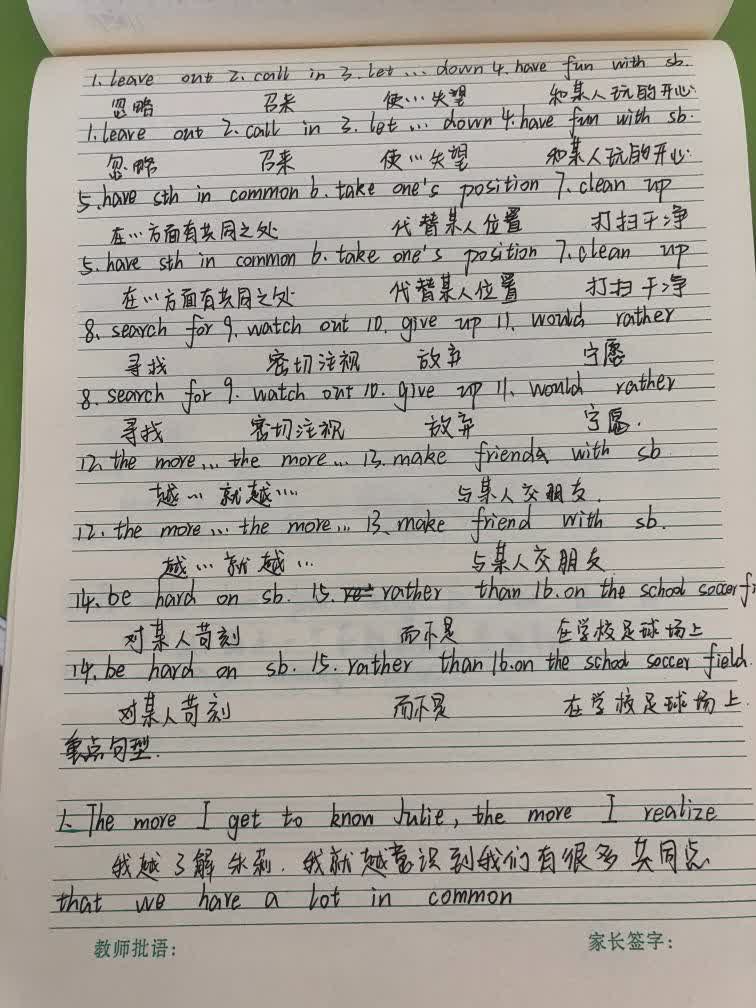 1. Leave out 2. call in 3. let … down 4. have fun with sb.
忽略 召来 使… 失望 和某人玩的开心
1. leave out 2. call in 3. let … down 4. have fun with sb.
忽略 召来 使… 失望 和某人玩的开心
5. have sth in common 6. take one's position 7. clean up
在…方面有共同之处 代替某人位置 打扫干净
5. have sth in common 6. take one's position 7. clean up
在…方面有共同之处 代替某人位置 打扫干净
8. search for 9. watch out 10. give up 11. would rather
寻找 密切注视 放弃 宁愿
8. search for 9. watch out 10. give up 11. would rather
寻找 密切注视 放弃 宁愿.
12. the more … the more … 13. make friends with sb
越… 就越… 与某人交朋友.
12. the more … the more … 13. make friend with sb.
越… 就越… 与某人交朋友
14. be hard on sb. 15. rather than 16. on the school soccer
对某人苛刻 而不是 在学校足球场上
14. be hard on sb. 15. rather than 16. on the school soccer field.
对某人苛刻 而不是 在学校足球场上.
重点句型.
1. The more I get to know Julie, the more I realize
我越了解朱莉. 我就越意识到我们有很多共同点
that we have a lot in common
教师批语: 家长签字: